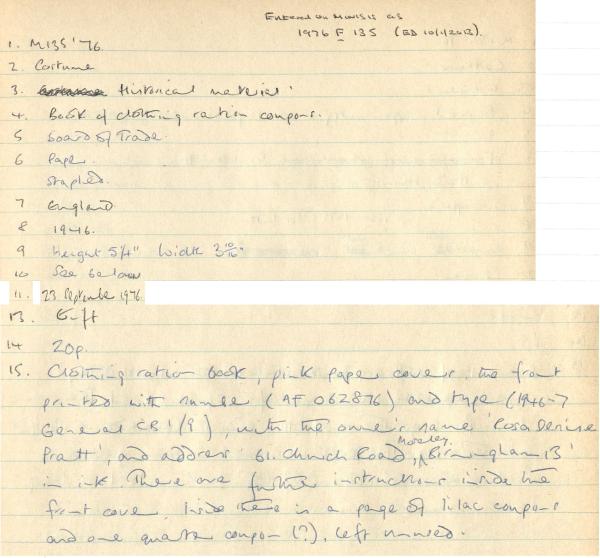 Entered on MINISIS as
1976 F 135 (ED 10/1/2013).
1. M135'76
2. Costume
3. Historical material.
4. Book of clothing ration coupons.
5 Board of Trade.
6 Paper.
Stapled.
7 England
8 1946.
9 Height 5¼" Width 3 10/16"
10 See below
11. 23 September 1976
13. Gift
14 20p.
15. Clothing ration book, pink paper covers, the front
printed with number (AF 062876) and type (1946-7
General CB1/9), with the owner's name 'Rosa Denise
Pratt', and address '61. Church Road, Moseley, Birmingham 13'
in ink. There are further instructions inside the
front cover. Inside there is a page of lilac coupons
and one quarter coupon (?), left unused.